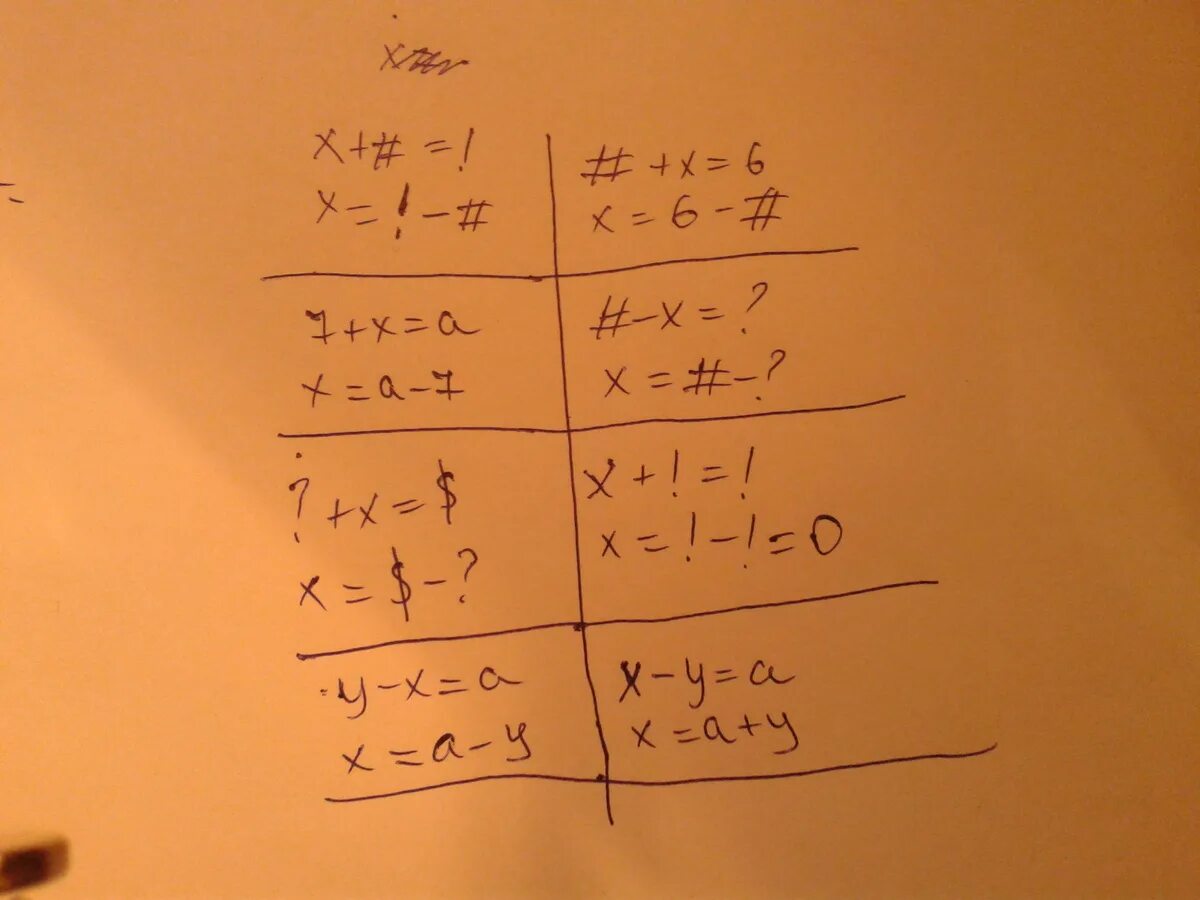 x+#=!
x=!-#
#+x=6
x=6-#
7+x=a
x=a-7
#-x=?
x=#-?
?+x=$
x=$-?
x+!=!
x=!-!=0
y-x=a
x=a-y
x-y=a
x=a+y